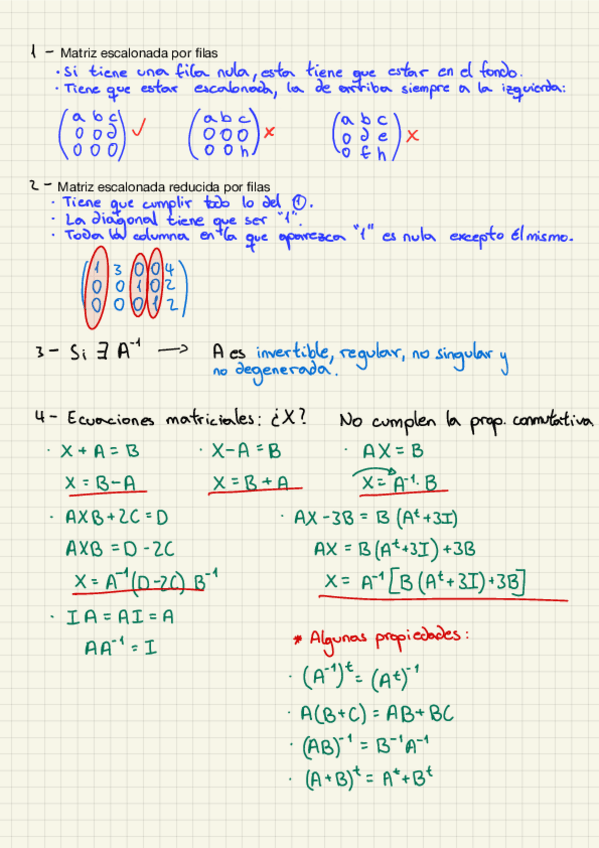 1 - Matriz escalonada por filas
· Si tiene una fila nula, esta tiene que estar en el fondo.
· Tiene que estar escalonada, la de arriba siempre a la izquierda:
(a b c) (a b c) (a b c)
(0 0 d) ✓ (0 0 0) × (0 d e) ×
(0 0 0) (0 0 h) (0 f h)
2 - Matriz escalonada reducida por filas
· Tiene que cumplir todo lo del ①.
· La diagonal tiene que ser "1".
· Toda la columna en la que aparezca "1" es nula excepto él mismo.
(1 3 0 0 4)
(0 0 1 0 2)
(0 0 0 1 2)
3 - Si ∃ A⁻¹ → A es invertible, regular, no singular y
no degenerada.
4 - Ecuaciones matriciales: ¿X? No cumplen la prop. conmutativa
· X + A = B · X - A = B · AX = B
X = B - A X = B + A X = A⁻¹ · B
· AXB + 2C = D · AX - 3B = B (Aᵗ + 3I)
AXB = D - 2C AX = B (Aᵗ + 3I) + 3B
X = A⁻¹ (D - 2C) B⁻¹ X = A⁻¹ [B (Aᵗ + 3I) + 3B]
· I A = A I = A
A A⁻¹ = I
* Algunas propiedades:
· (A⁻¹)ᵗ = (Aᵗ)⁻¹
· A(B + C) = AB + BC
· (AB)⁻¹ = B⁻¹A⁻¹
· (A + B)ᵗ = Aᵗ + Bᵗ